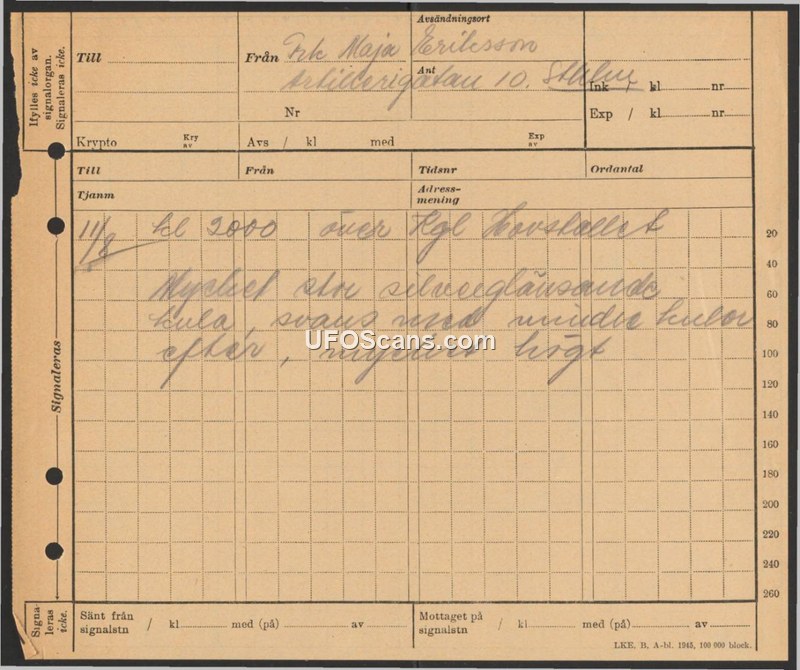 Ifylles icke av
signalorgan.
Signaleras icke.
Till
Från Frk Maja Eriksson
Avsändningsort
Artillerigatan 10. Sthlm
Ant
Nr
Ink kl nr
Exp / kl nr
Krypto Kry av
Avs / kl med Exp av
Till Från Tidsnr Ordantal
Tjanm Adress-
mening
11/8 kl 2000 över Kgl Hovstallet
Mycket stor silverglänsande
kula, svans med mindre kulor
efter, mycket högt
UFOScans.com
20
40
60
80
100
120
140
160
180
200
220
240
260
Signaleras
Signa-
leras
icke.
Sänt från
signalstn / kl med (på) av
Mottaget på
signalstn / kl med (på) av
LKE. B, A-bl. 1945, 100 000 block.